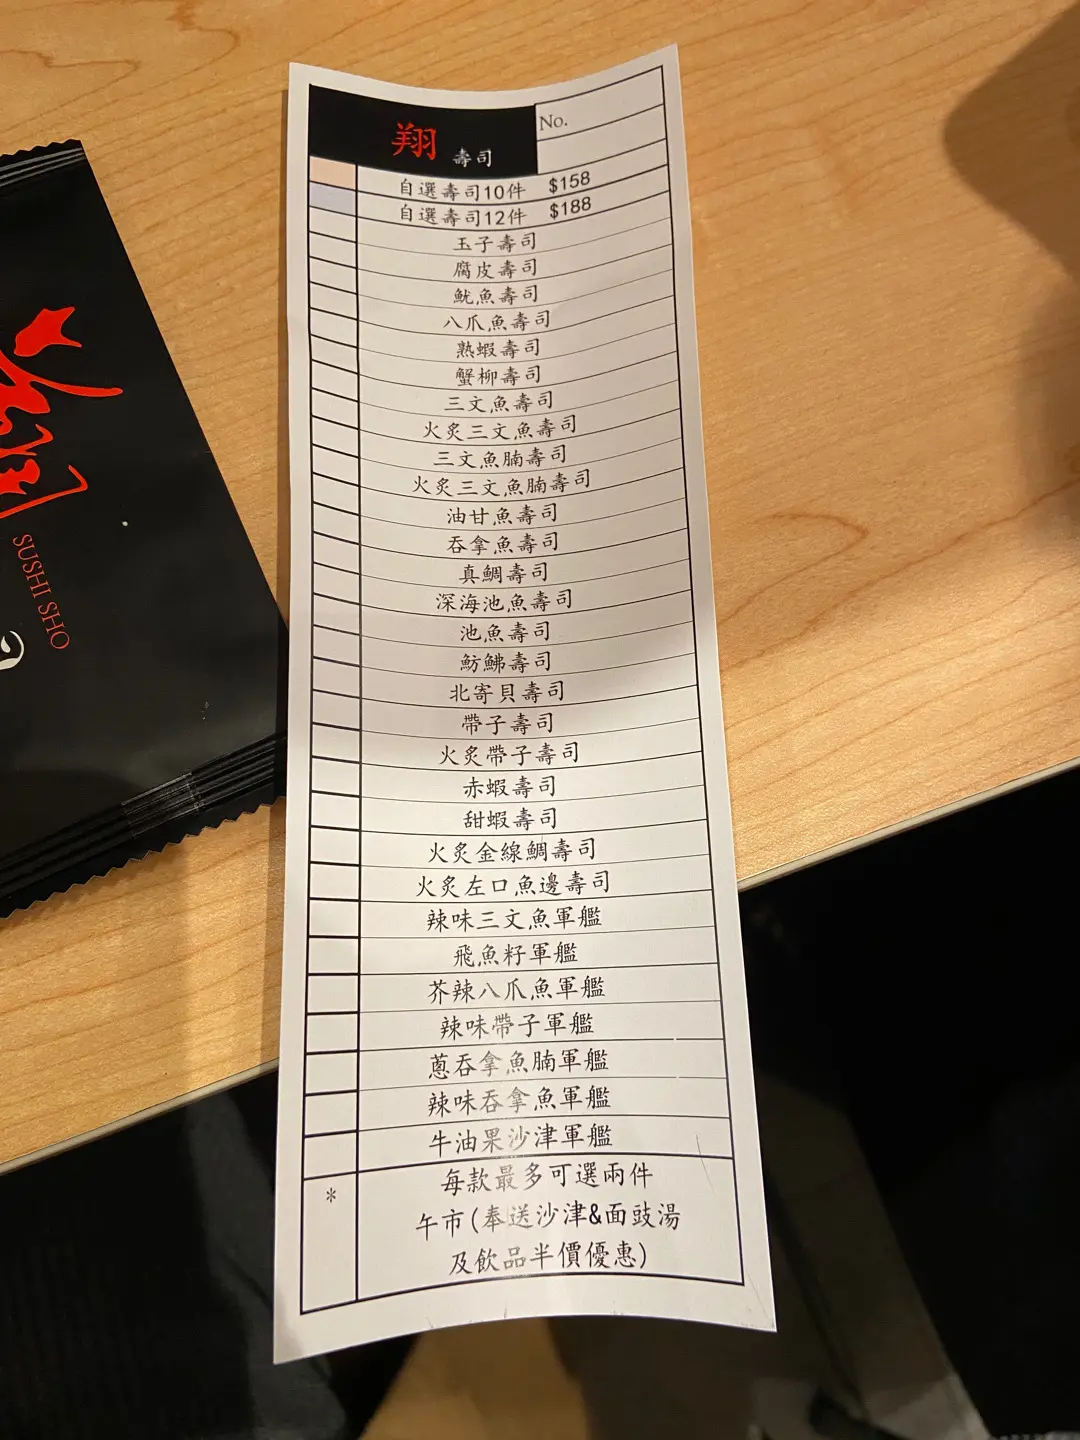 翔 壽司
No.
自選壽司10件 $158
自選壽司12件 $188
玉子壽司
腐皮壽司
魷魚壽司
八爪魚壽司
熟蝦壽司
蟹柳壽司
三文魚壽司
火炙三文魚壽司
三文魚腩壽司
火炙三文魚腩壽司
油甘魚壽司
吞拿魚壽司
真鯛壽司
深海池魚壽司
池魚壽司
魴鮄壽司
北寄貝壽司
帶子壽司
火炙帶子壽司
赤蝦壽司
甜蝦壽司
火炙金線鯛壽司
火炙左口魚邊壽司
辣味三文魚軍艦
飛魚籽軍艦
芥辣八爪魚軍艦
辣味帶子軍艦
蔥吞拿魚腩軍艦
辣味吞拿魚軍艦
牛油果沙津軍艦
* 每款最多可選兩件
午市(奉送沙津&面豉湯
及飲品半價優惠)
翔
SUSHI SHO